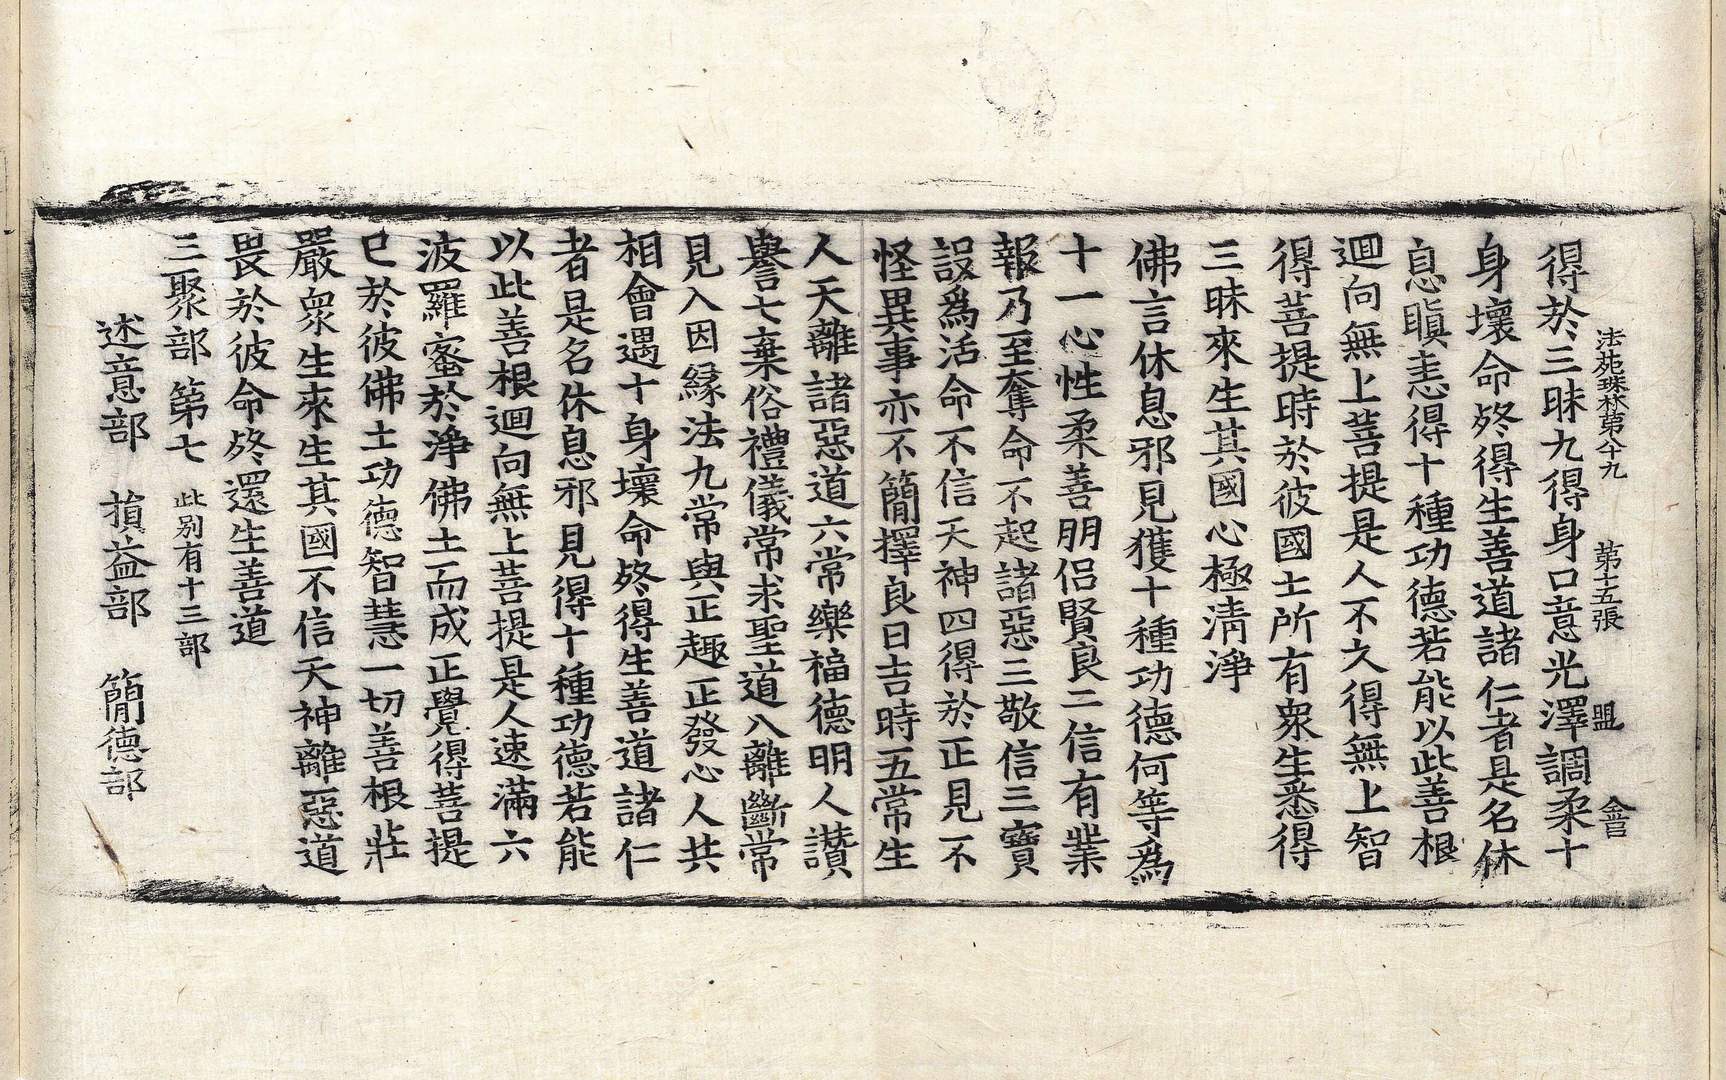 法苑珠林第八十九 第十五張 盟
得於三昧九得身口意光澤調柔十
身壞命終得生善道諸仁者是名休
息瞋恚得十種功德若能以此善根
迴向無上菩提是人不久得無上智
得菩提時於彼國土所有衆生悉得
三昧來生其國心極清淨
佛言休息邪見獲十種功德何等爲
十一心性柔善朋侶賢良二信有業
報乃至奪命不起諸惡三敬信三寶
設爲活命不信天神四得於正見不
怪異事亦不簡擇良日吉時五常生
人天離諸惡道六常樂福德明人讚
譽七棄俗禮儀常求聖道八離斷常
見入因緣法九常與正趣正發心人共
相會遇十身壞命終得生善道諸仁
者是名休息邪見得十種功德若能
以此善根迴向無上菩提是人速滿六
波羅蜜於淨佛土而成正覺得菩提
已於彼佛土功德智慧一切善根莊
嚴衆生來生其國不信天神離惡道
畏於彼命終還生善道
三聚部第七 此别有十三部
述意部 損益部 簡德部